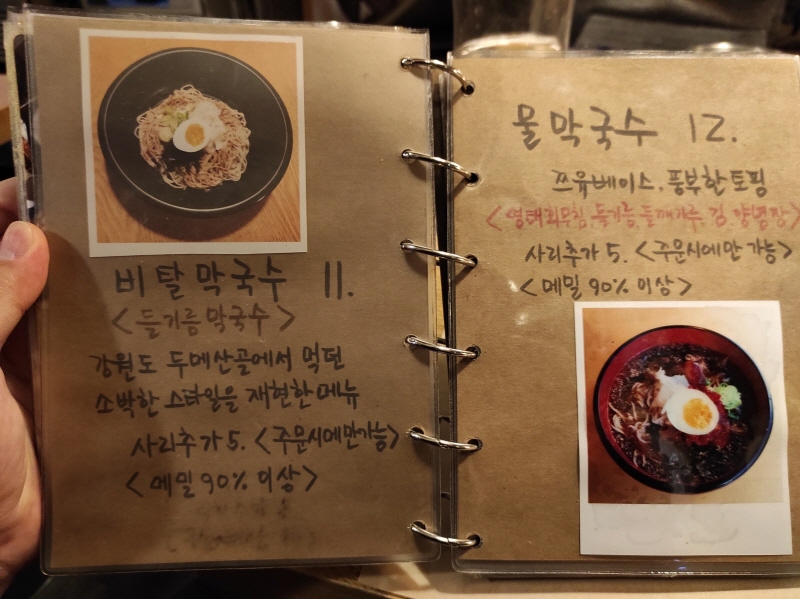 비탈막국수 11.
<들기름막국수>
강원도 두메산골에서 먹던
소박한 스타일을 재현한 메뉴
사리추가 5. <주문시에만가능>
<메밀 90% 이상>
물막국수 12.
쯔유베이스, 풍부한 토핑
<명태회무침, 들기름, 들깨가루, 김, 양념장>
사리추가 5. <주문시에만 가능>
<메밀 90% 이상>